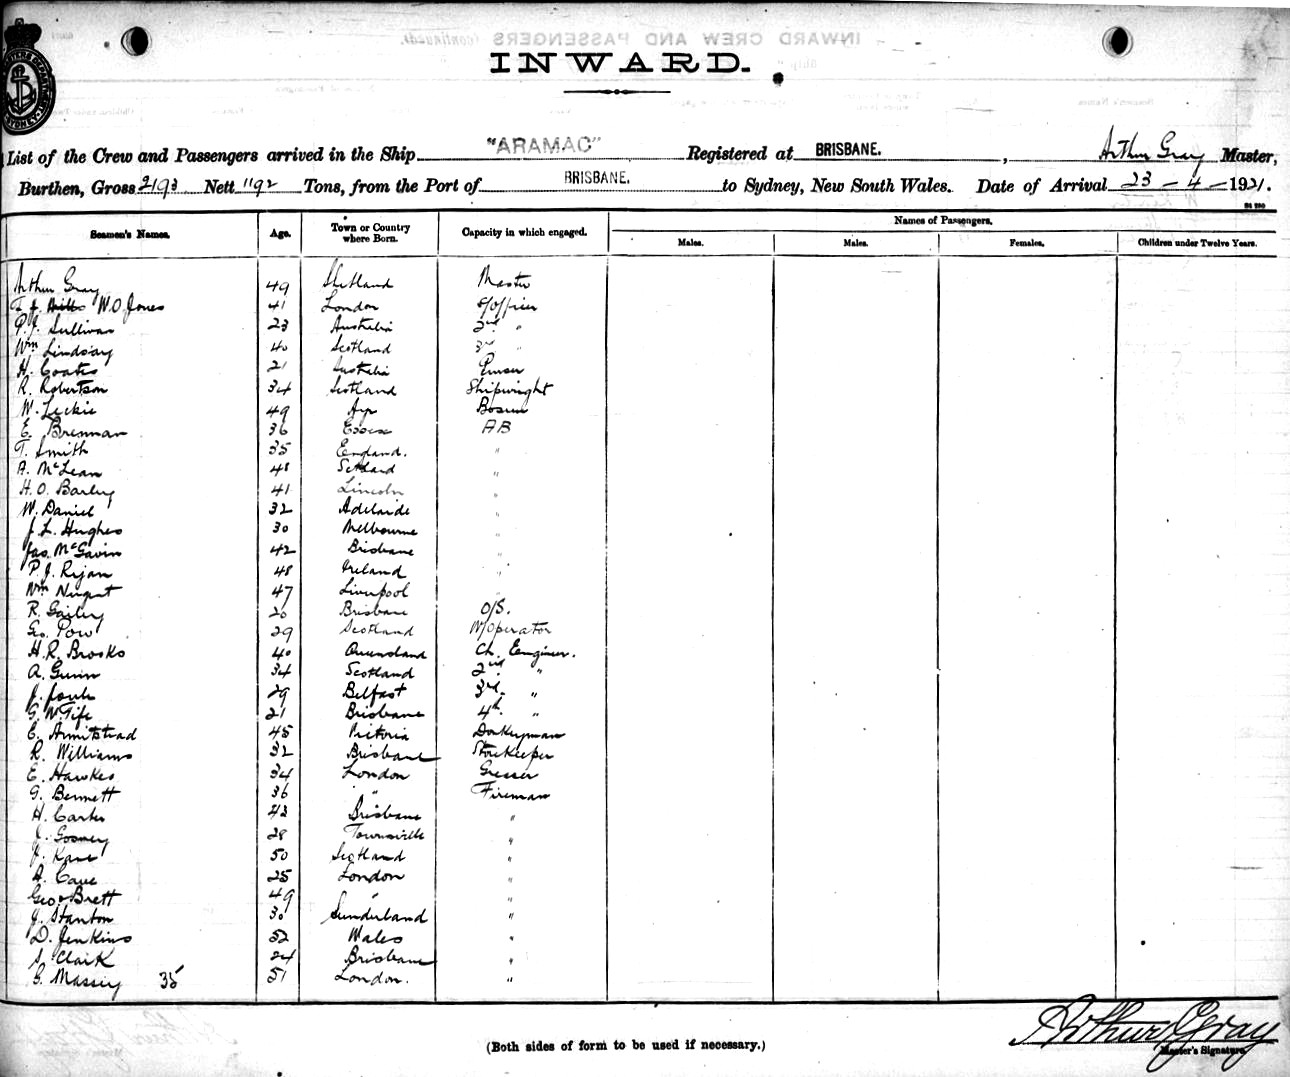 INWARD.
List of the Crew and Passengers arrived in the Ship "ARAMAC" Registered at BRISBANE. , Arthur Gray Master,
Burthen, Gross 2193 Nett 1192 Tons, from the Port of BRISBANE. to Sydney, New South Wales. Date of Arrival 23 - 4 - 1921.
Seamen's Names. Age. Town or Country where Born. Capacity in which engaged. Names of Passengers.
Males. Males. Females. Children under Twelve Years.
Arthur Gray 49 Shetland Master
W.O. Jones 41 London Officer
P.J. Sullivan 23 Australia 2nd "
Wm Lindsay 40 Scotland 3rd "
H. Coates 21 Australia Purser
R. Robertson 34 Scotland Shipwright
W. Leckie 49 Ayr Bosun
E. Brennan 36 Essex AB
T. Smith 35 England. "
A. McLean 48 Scotland "
H.O. Barley 41 Lincoln "
W. Daniel 32 Adelaide "
J.L. Hughes 30 Melbourne "
Jas. McGavin 42 Brisbane "
P.J. Ryan 48 Ireland "
Wm Nugent 47 Liverpool "
R. Gailey 20 Brisbane O/S.
Geo. Pow 29 Scotland W/Operator
H.R. Brooks 40 Queensland Ch. Engineer.
A. Gunn 34 Scotland 2nd "
J. 29 Belfast 3rd. "
G. McFife 21 Brisbane 4th. "
C. Armitstead 45 Victoria Donkeyman
R. Williams 32 Brisbane Storekeeper
E. Hawkes 34 London Greaser
G. Bennett 36 " Fireman
H. Carter 43 Brisbane "
J. Gosney 28 Townsville "
J. Kane 50 Scotland "
A. Cave 25 London "
Geo. Brett 49 " "
J. Stanton 30 Sunderland "
D. Jenkins 52 Wales "
S. Clark 24 Brisbane "
G. Massey 35 51 London. "
(Both sides of form to be used if necessary.)
Arthur Gray
Master's Signature.